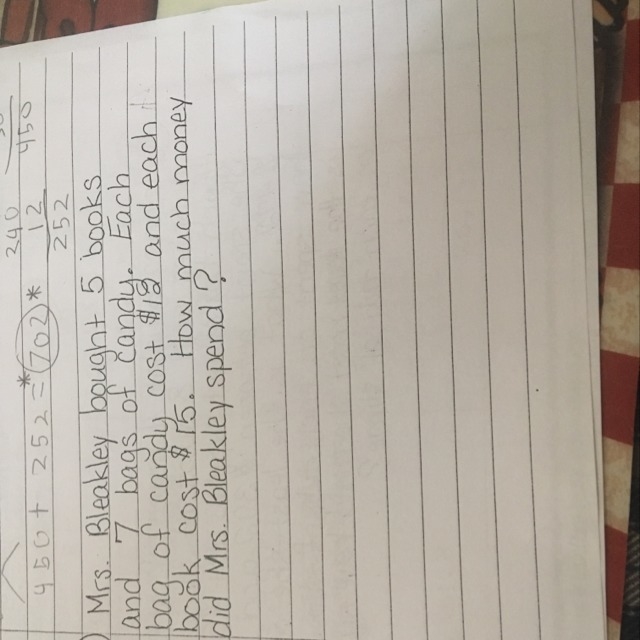 450
240
12
252
450 + 252 = *702*
Mrs. Bleakley bought 5 books
and 7 bags of candy. Each
bag of candy cost $13 and each
book cost $15. How much money
did Mrs. Bleakley spend?